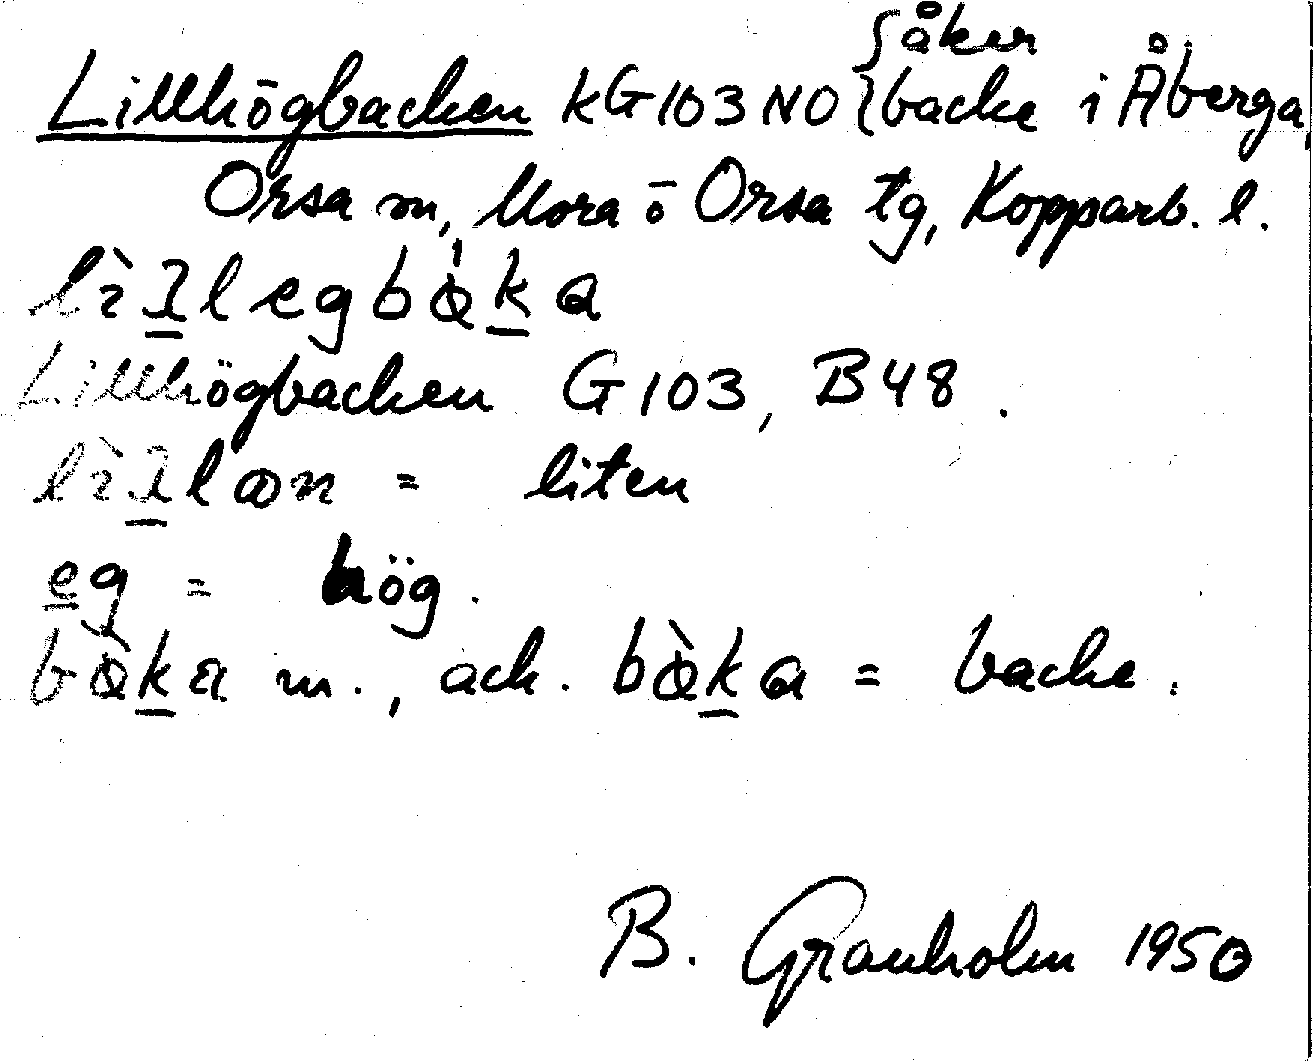 Lillhögbacken KG103NO {åker backe i Åberga,
Orsa sn, Mora o Orsa tg, Kopparb. l.
lìꞎlegbàka
Lillhögbacken G103, B48.
= liten
eg = hög.
bàka m., ack. bàka = backe.
B. Granholm 1950